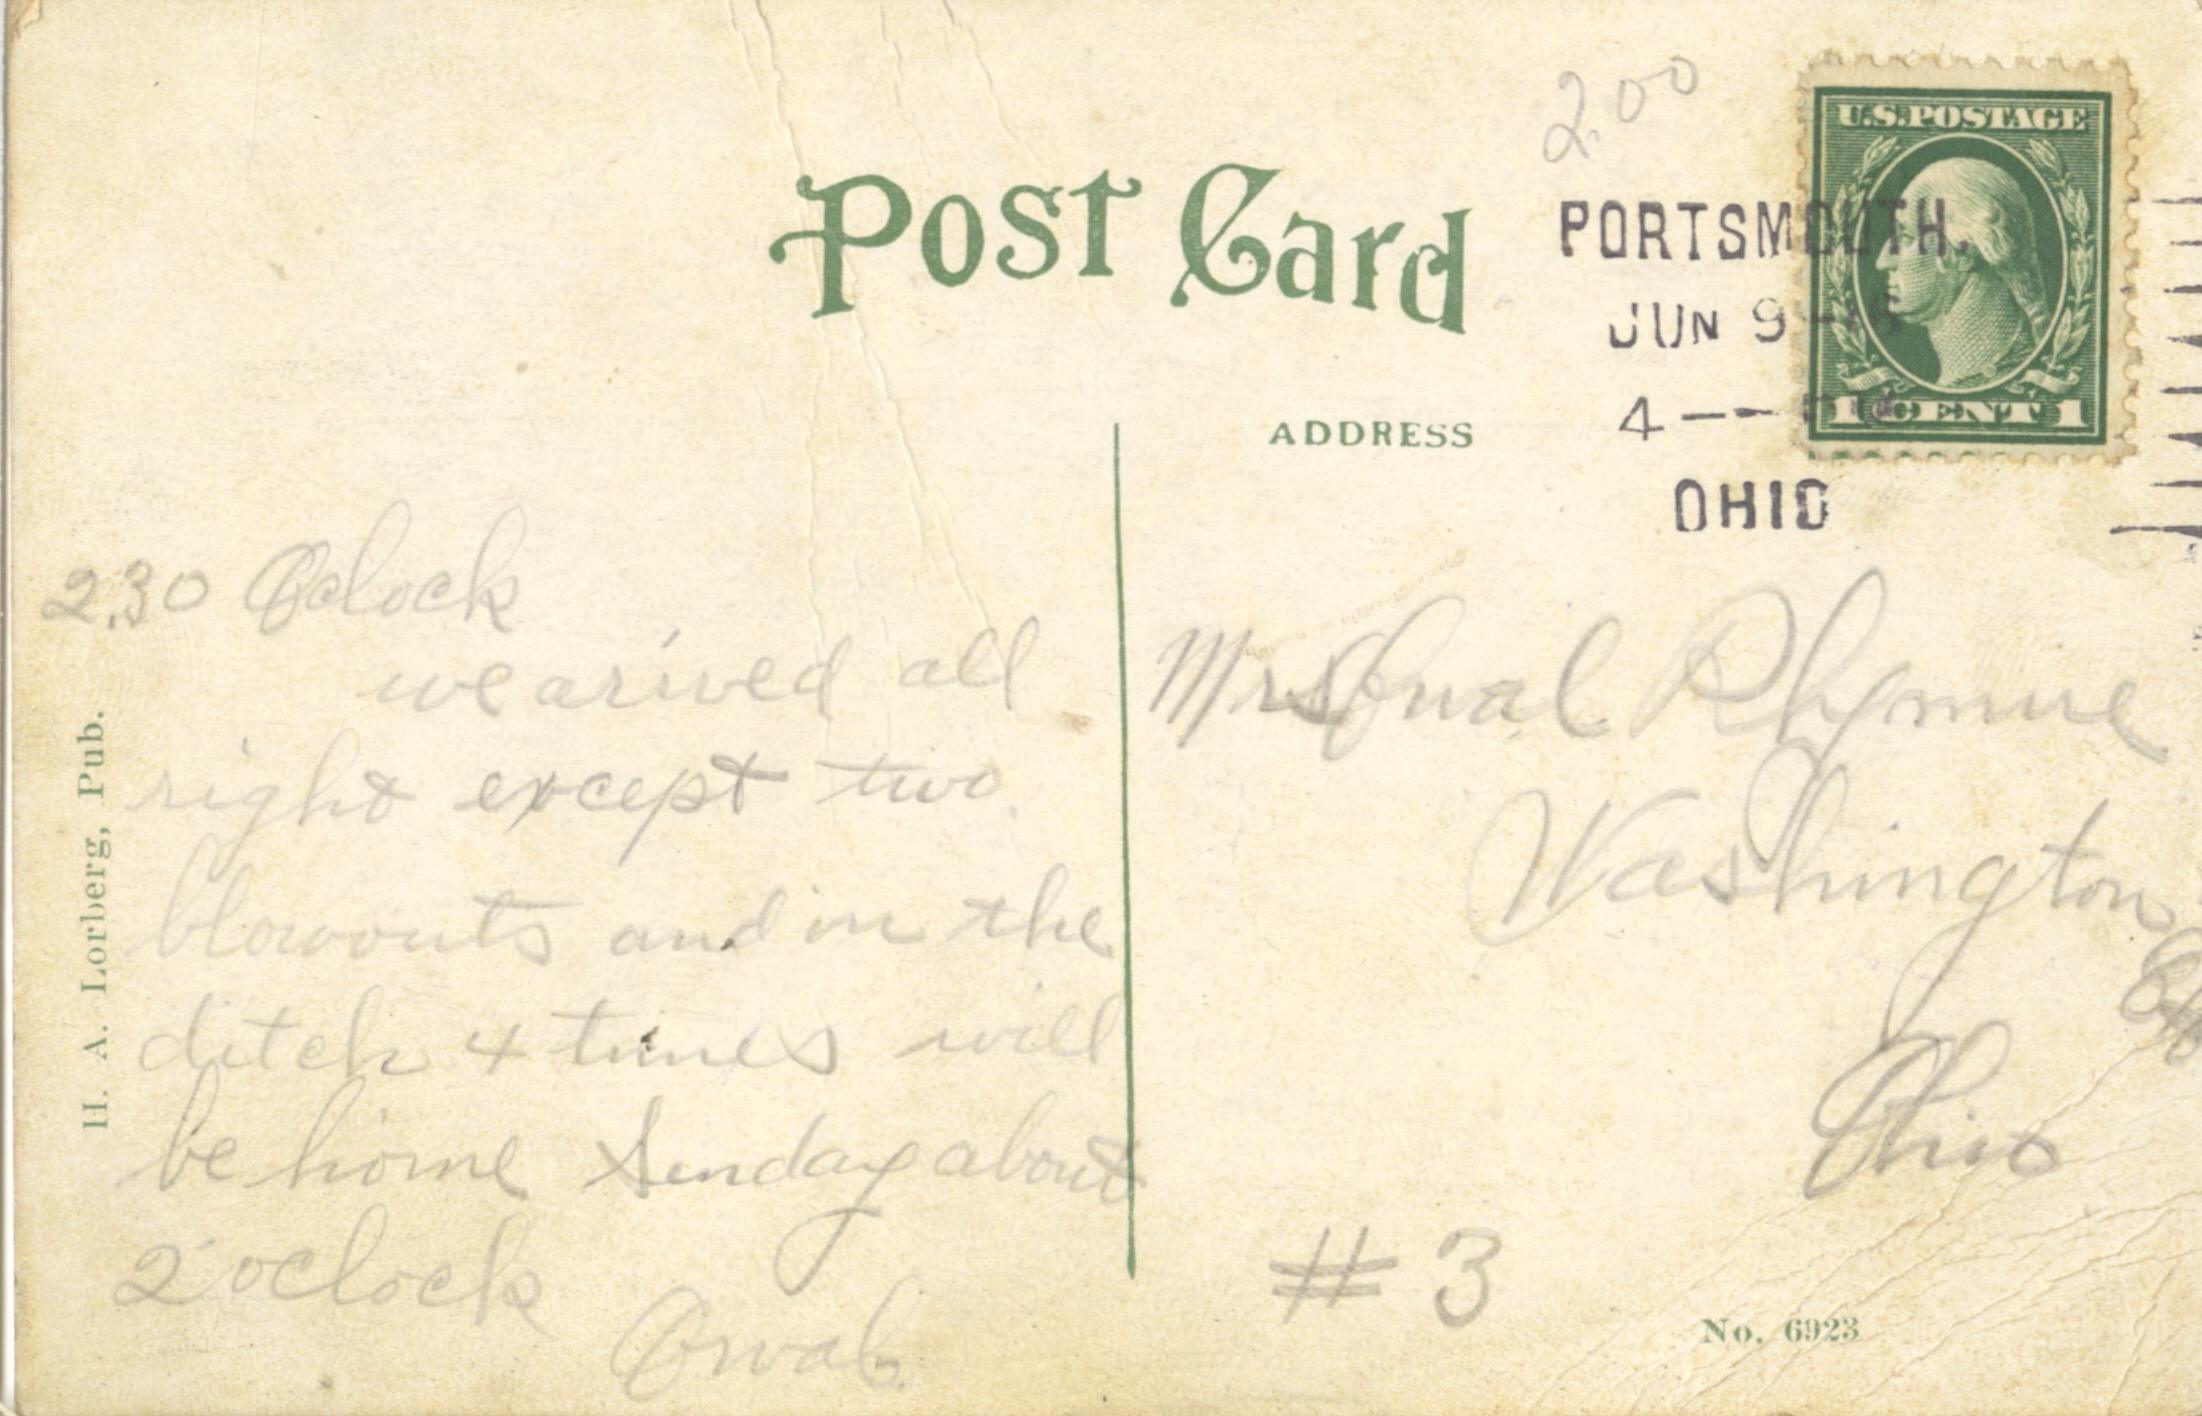 2.00
U.S. POSTAGE
1 CENT 1
PORTSMOUTH.
JUN 9
4—— PM
OHIO
Post Card
ADDRESS
2.30 Oclock
we arived all
right except two
blowouts and in the
ditch 4 times will
be home Sunday about
2 oclock
Orval
Mrs Orval
Washington
Ohio
# 3
H. A. Lorberg, Pub.
No. 6923